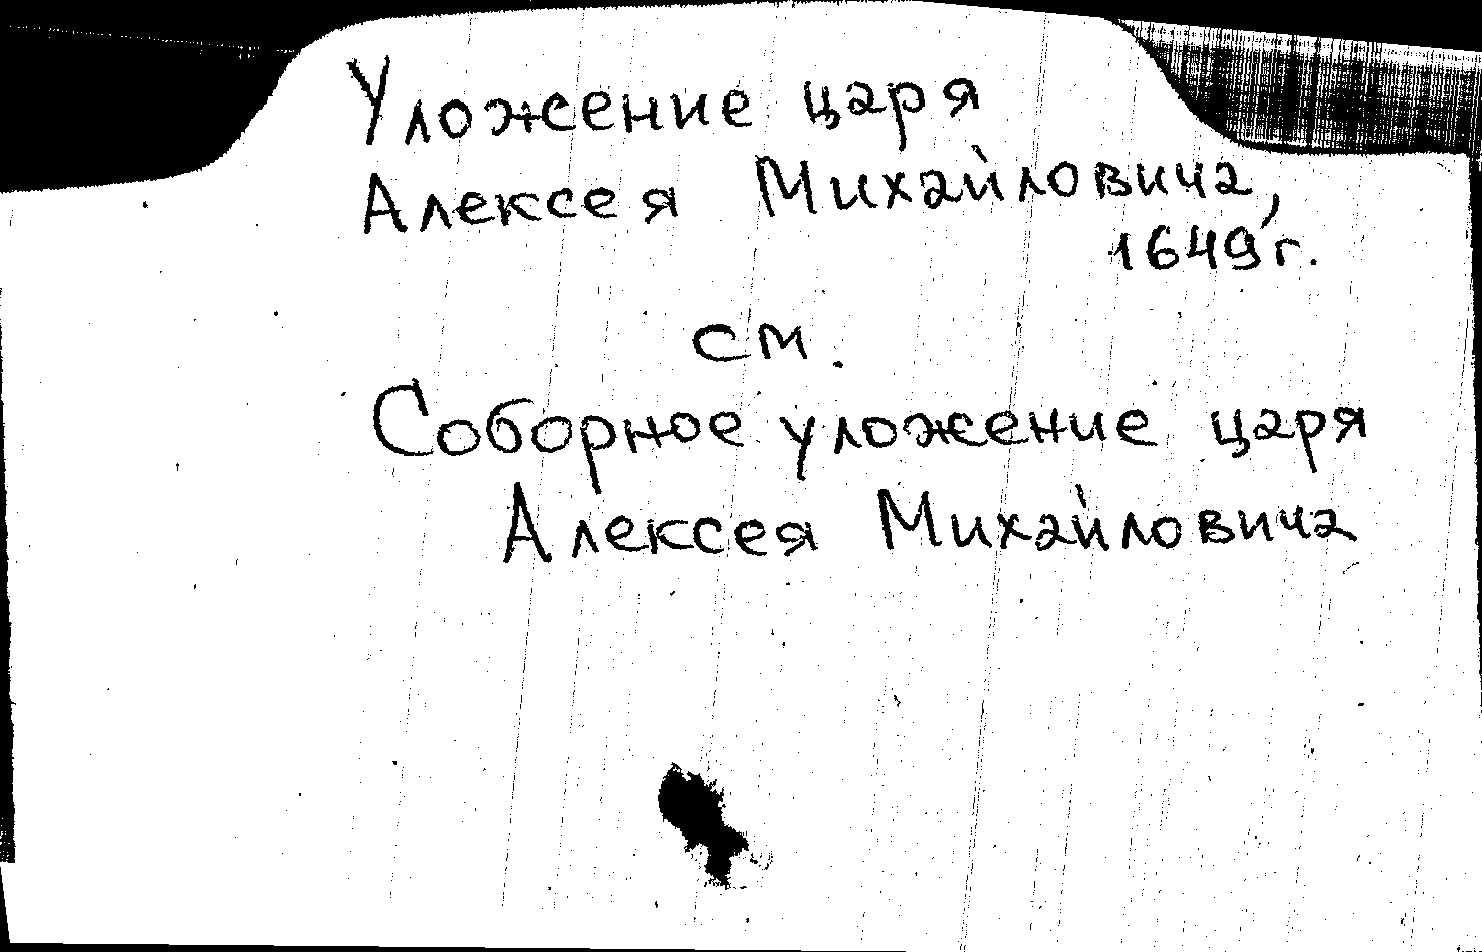 Уложение царя
Алексея Михайловича,
1649 г.
см.
Соборное уложение царя
Алексея Михайловича